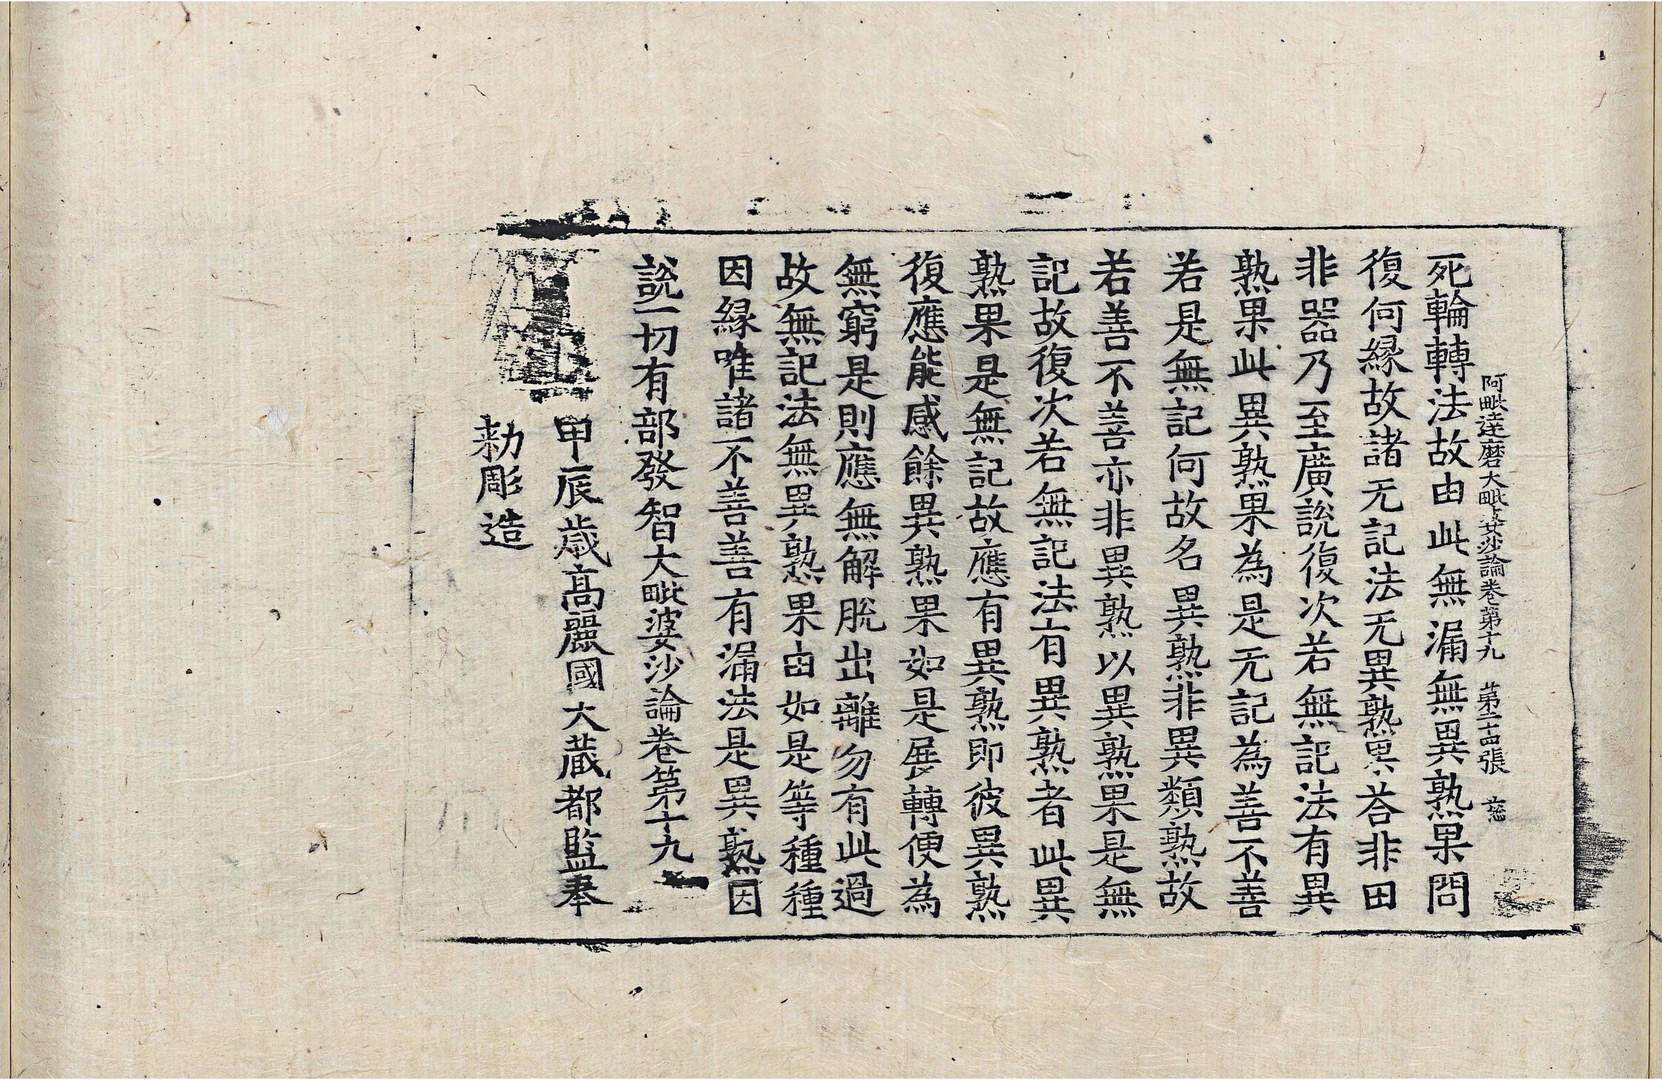 阿毗達磨大毗婆沙論卷第十九 第二十四張 慈
死輪轉法故由此無漏無異熟果問
復何緣故諸无記法无異熟果荅非田
非器乃至廣說復次若無記法有異
熟果此異熟果為是无記為善不善
若是無記何故名異熟非異類熟故
若善不善亦非異熟以異熟果是無
記故復次若無記法有異熟者此異
熟果是無記故應有異熟即彼異熟
復應能感餘異熟果如是展轉便為
無窮是則應無解脫出離勿有此過
故無記法無異熟果由如是等種種
因緣唯諸不善善有漏法是異熟因
說一切有部發智大毗婆沙論卷第十九
甲辰歲高麗國大藏都監奉
勑彫造